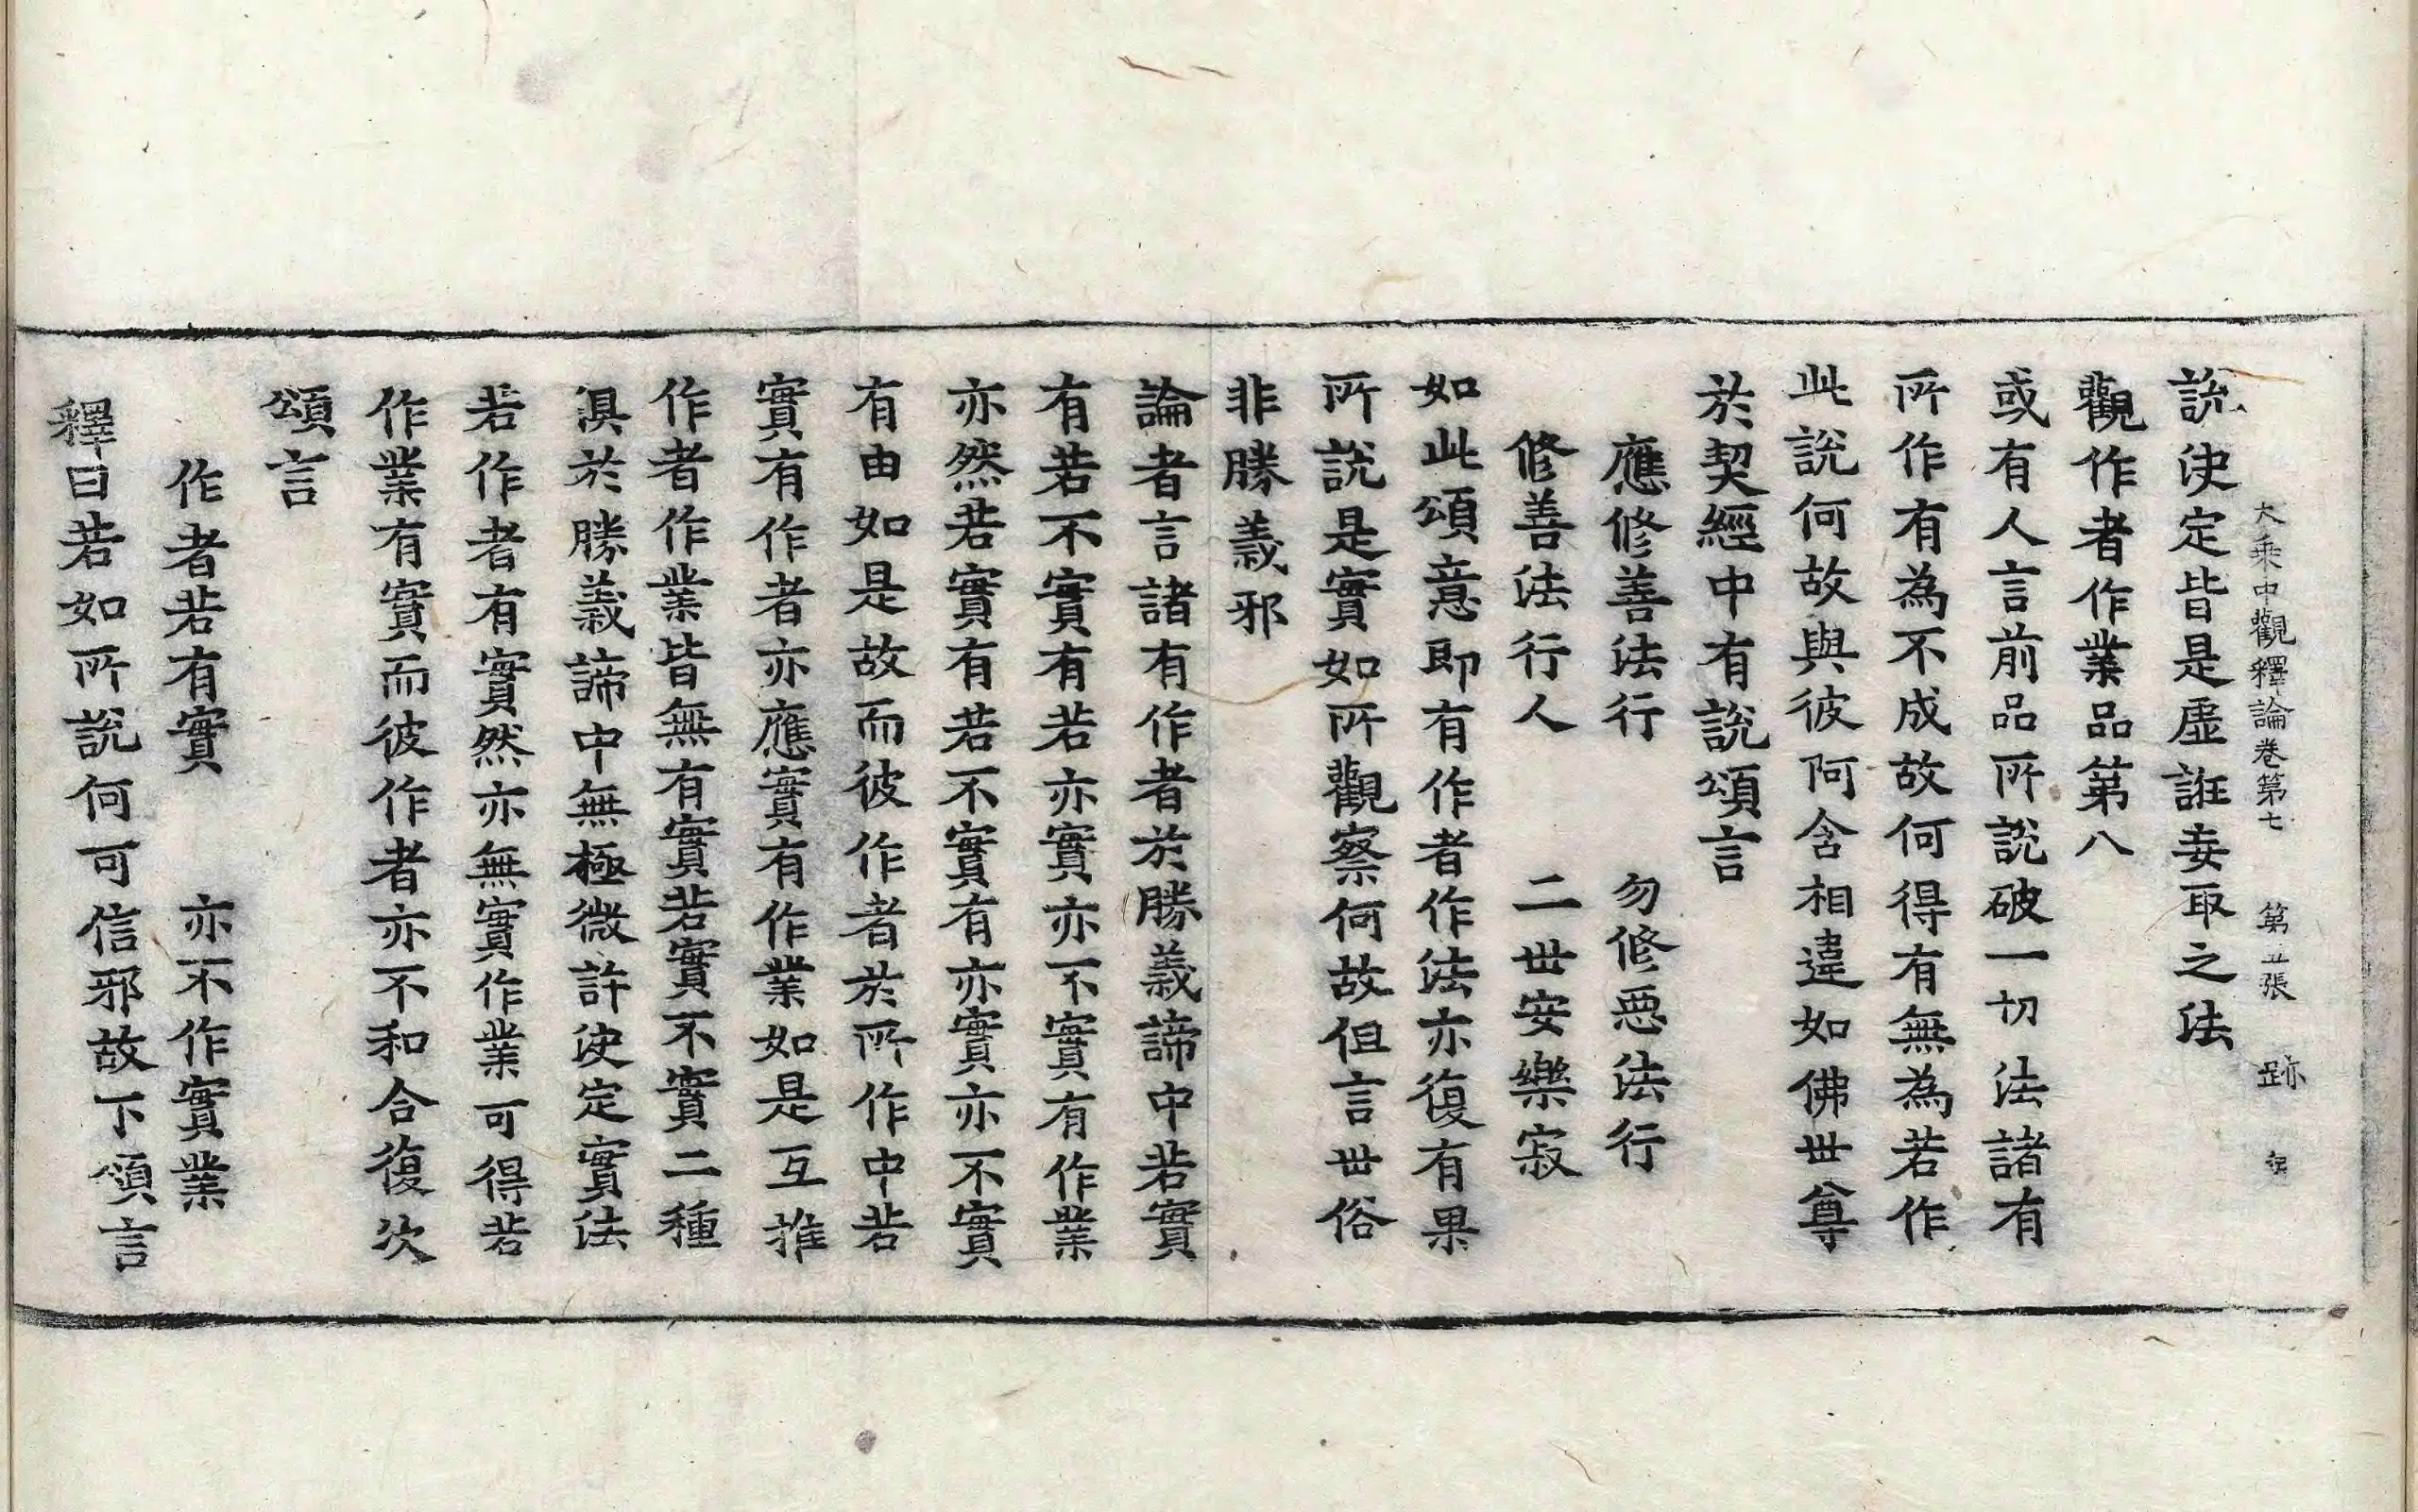 大乘中觀釋論卷第七 第三張 跡
說決定皆是虛誑妄取之法
觀作者作業品第八
或有人言前品所說破一切法諸有
所作有為不成故何得有無為若作
此說何故與彼阿含相違如佛世尊
於契經中有說頌言
應修善法行 勿修惡法行
修善法行人 二世安樂寂
如此頌意即有作者作法亦復有果
所說是實如所觀察何故但言世俗
非勝義邪
論者言諸有作者於勝義諦中若實
有若不實有若亦實亦不實有作業
亦然若實有若不實有亦實亦不實
有由如是故而彼作者於所作中若
實有作者亦應實有作業如是互推
作者作業皆無有實若實不實二種
俱於勝義諦中無極微許決定實法
若作者有實然亦無實作業可得若
作業有實而彼作者亦不和合復次
頌言
作者若有實 亦不作實業
釋曰若如所說何可信邪故下頌言